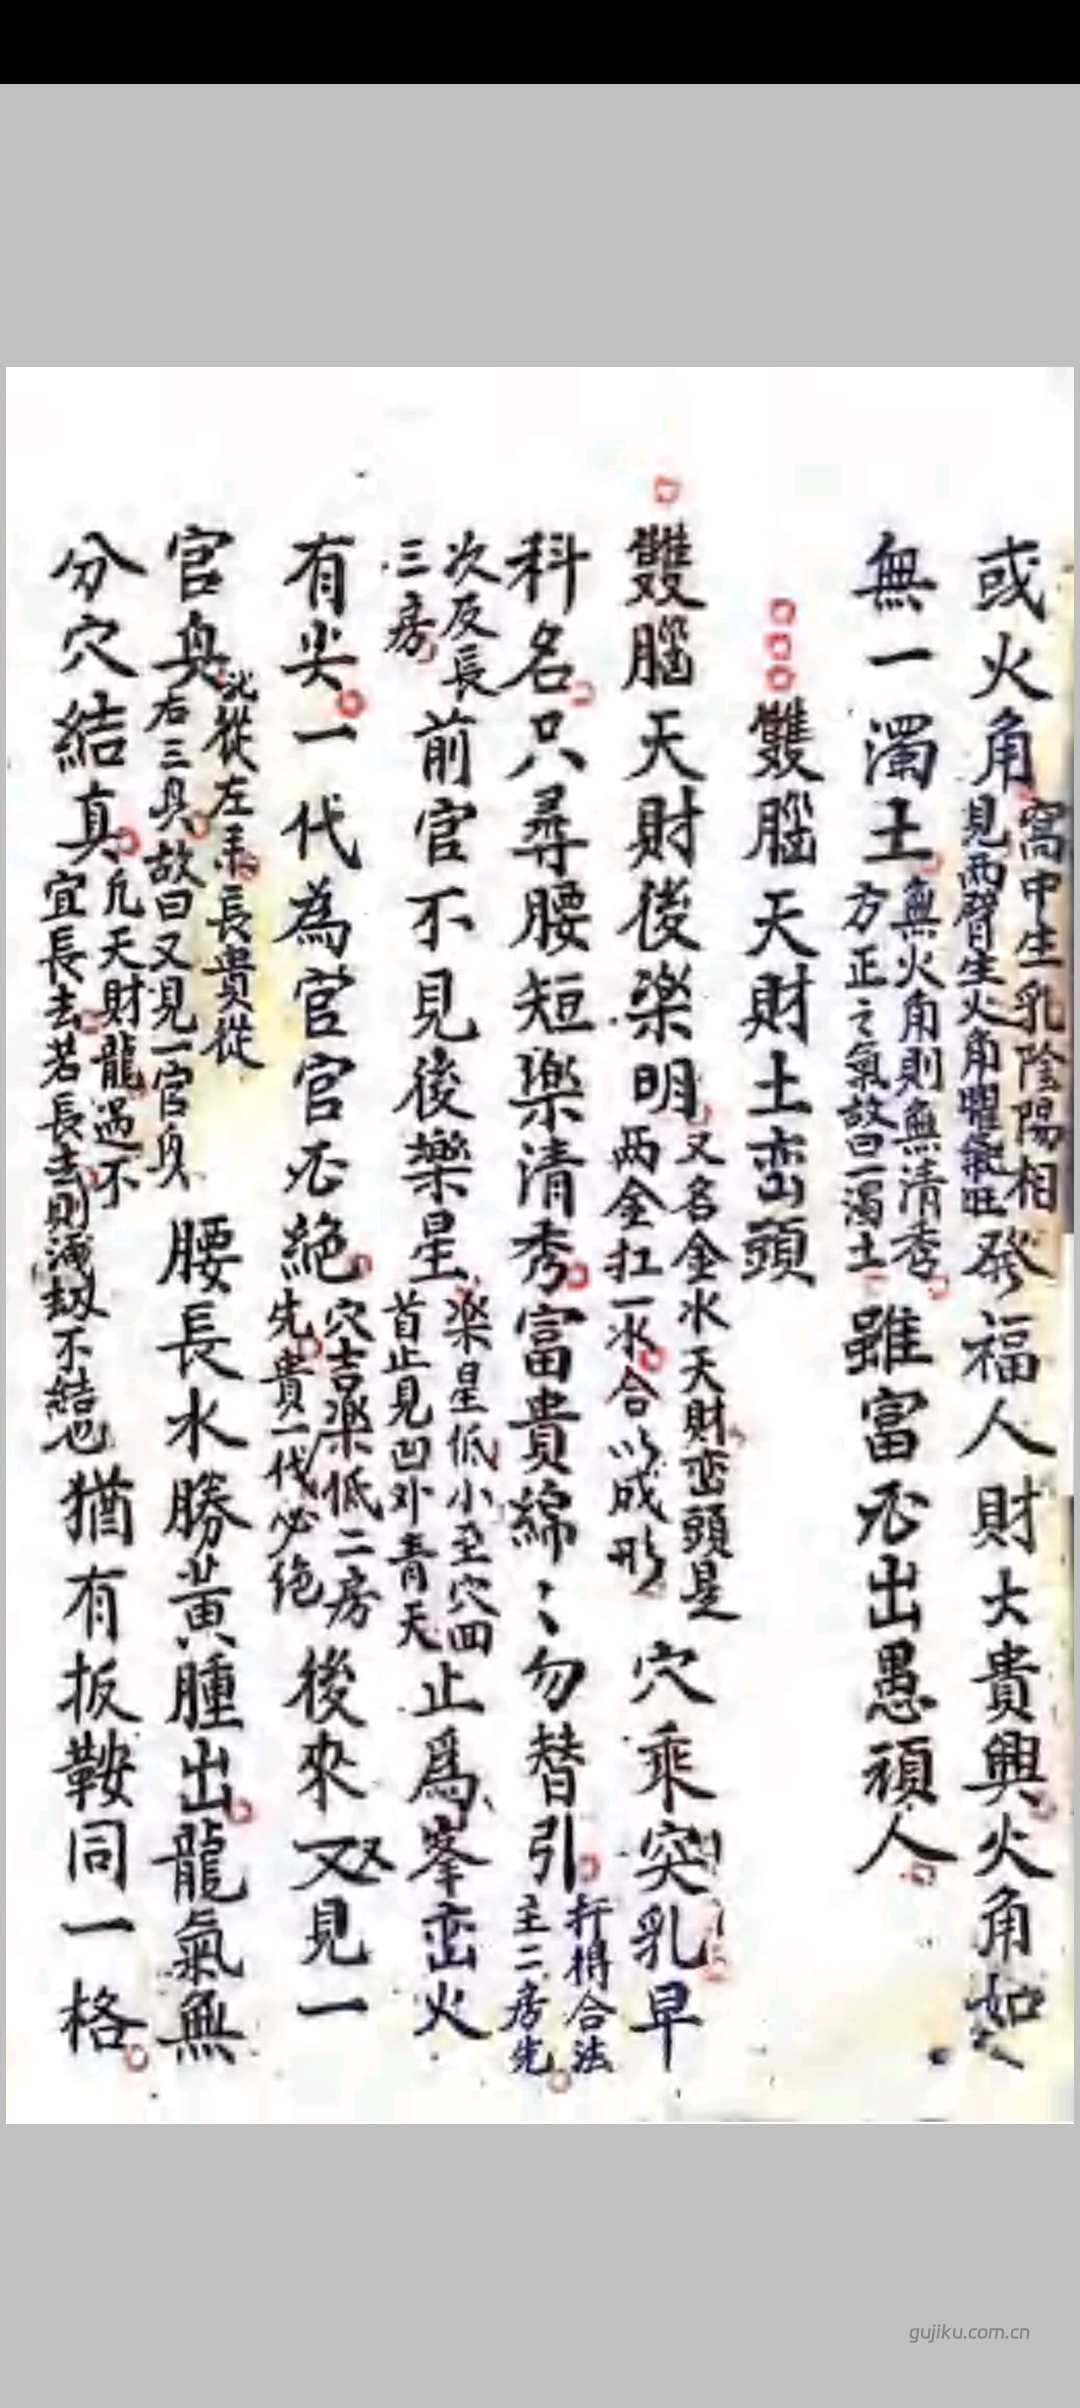 或火角窩中生乳陰陽相見兩臂生火角曜氣旺發福人財大貴興火角如
無一濁土無火角則無清秀方正之氣故曰一濁土雖富必出愚頑人
雙腦天財土巒頭
雙腦天財後樂明又名金水天財巒頭是两金扛一水合以成形穴乘突乳早
科名只尋腰短樂清秀富貴綿〻勿替引扦得合法主二房先
次及長三房前官不見後樂星楽星低小至穴四首止見凹外青天止爲峯巒火
有尖一代為官官必絕穴吉楽低二房先貴一代必絶後來又見一
官鬼此從左来長貴從右三鬼故曰又見一官鬼腰長水勝黃腫出龍氣無
分穴結真凢天財龍過不宜長去若長去則殺刼不結也猶有扳鞍同一格
gujiku.com.cn